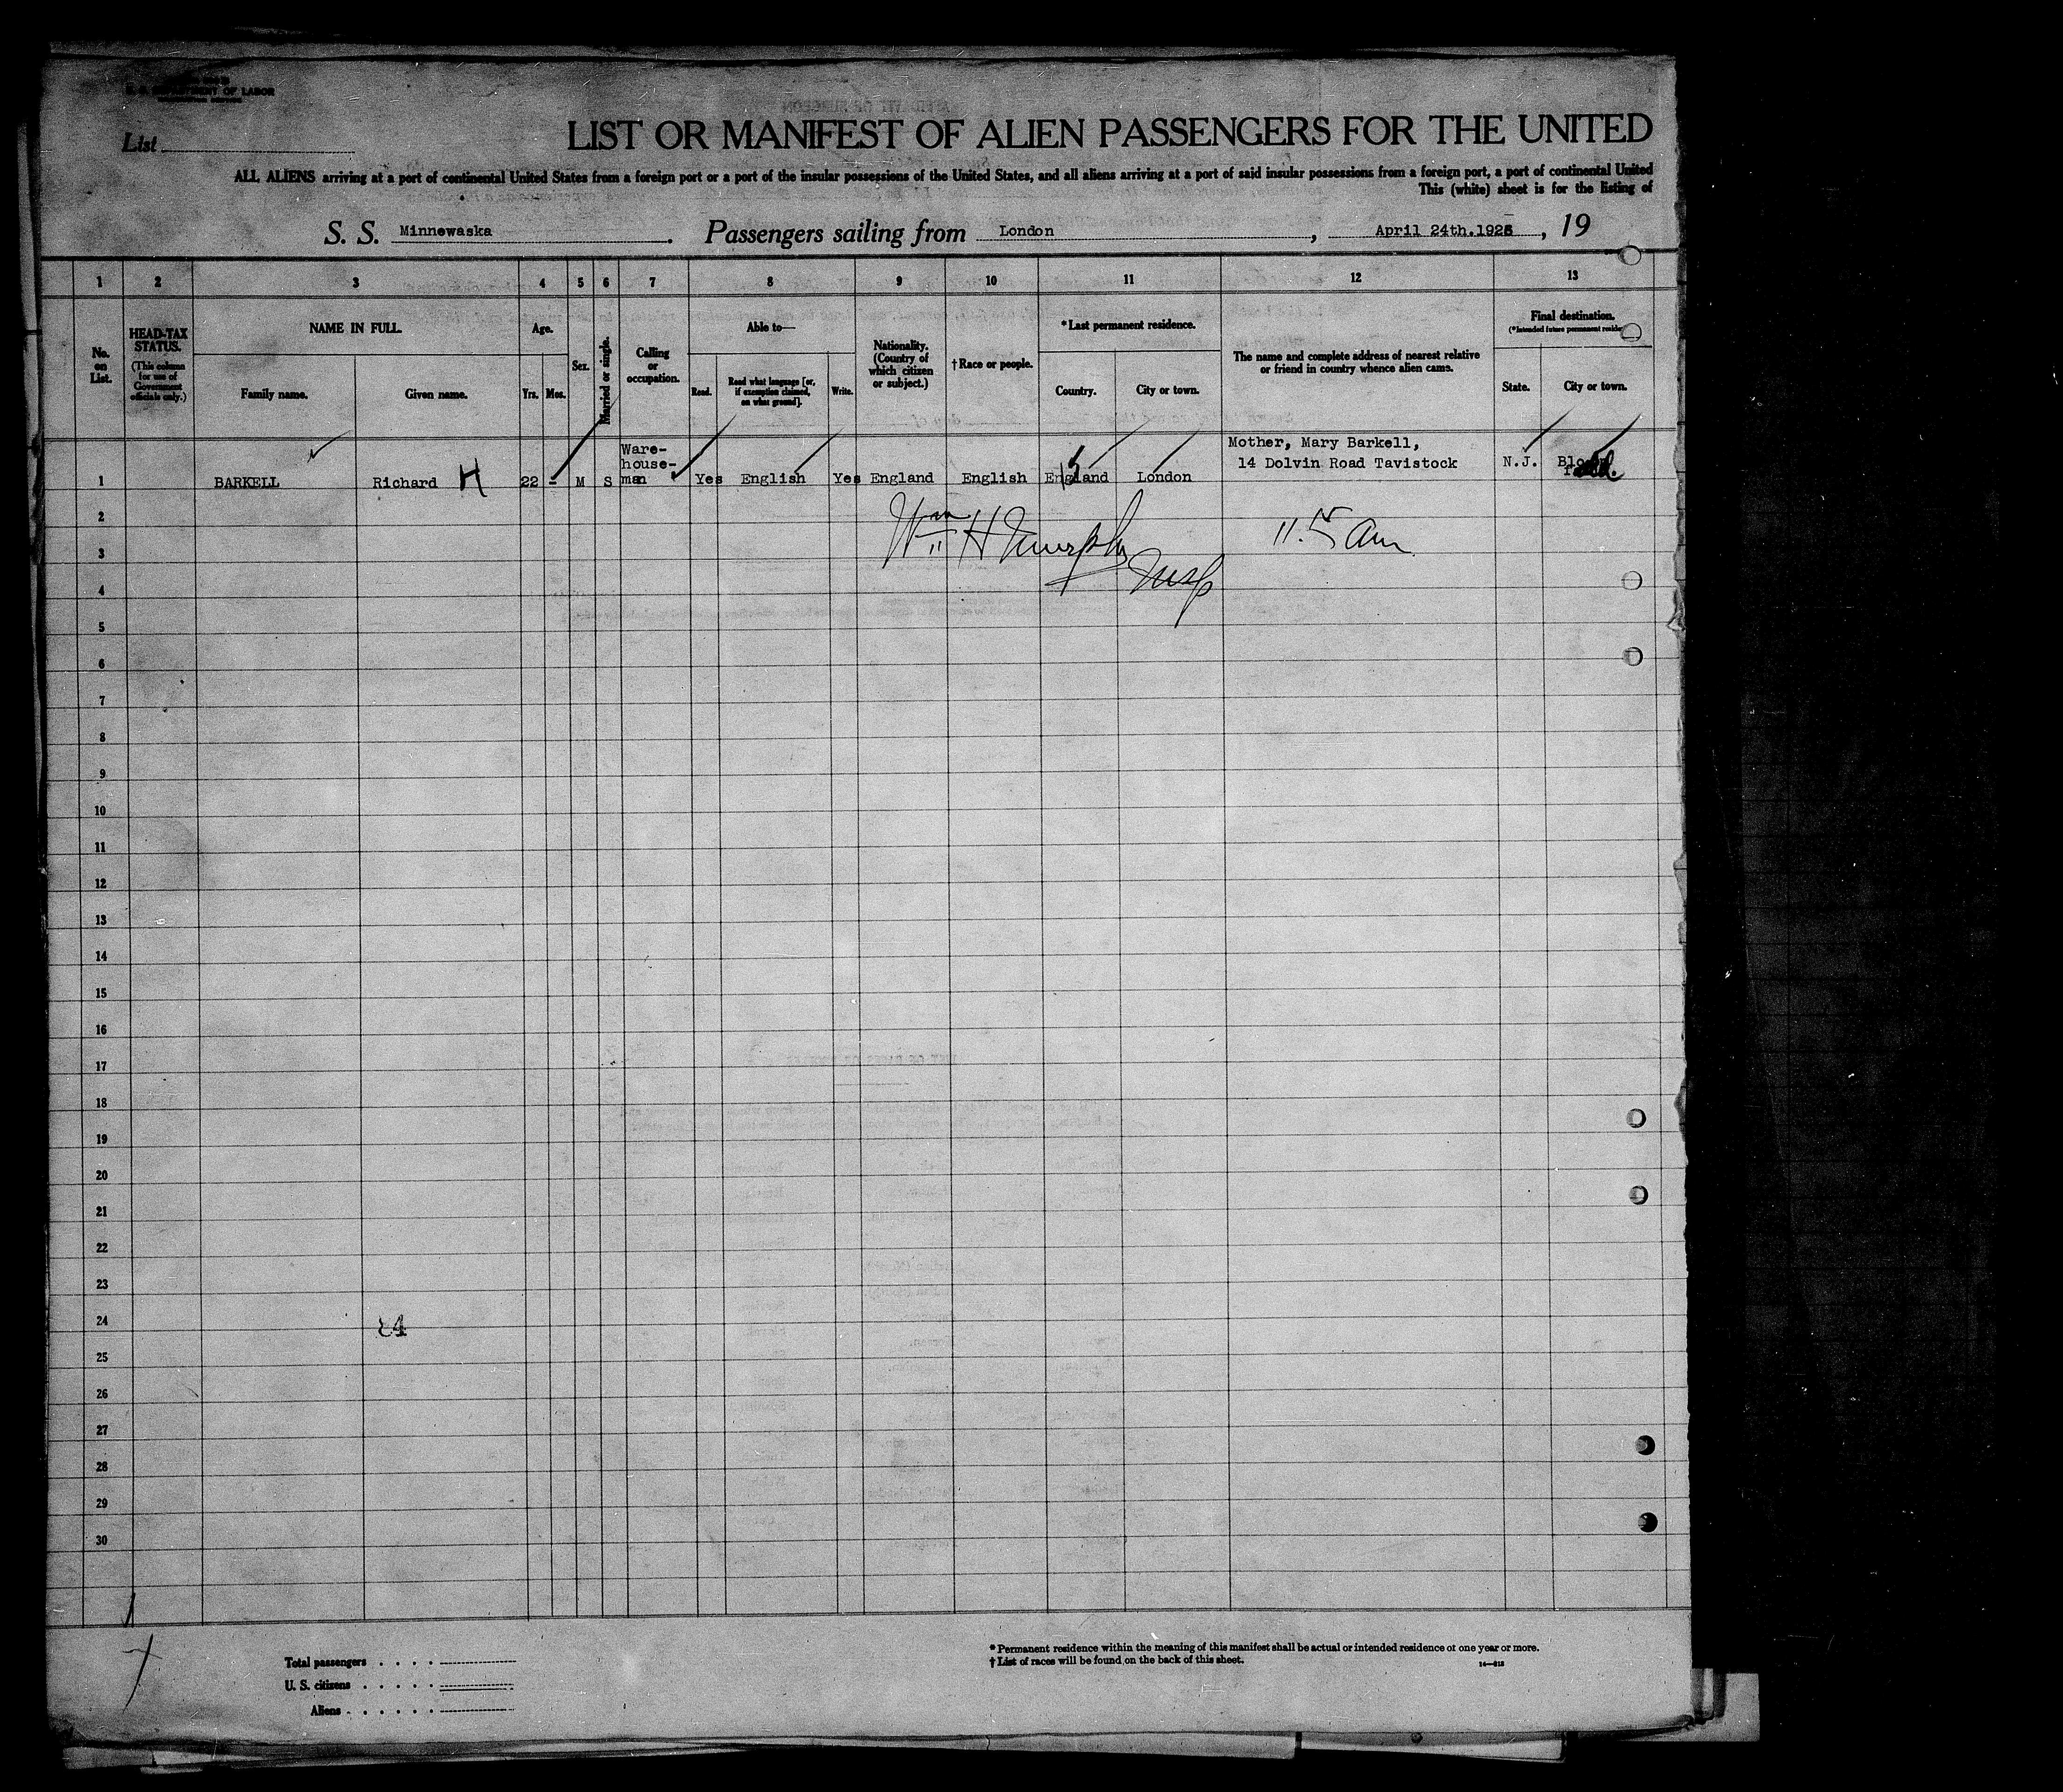 U. S. DEPARTMENT OF LABOR
List
LIST OR MANIFEST OF ALIEN PASSENGERS FOR THE UNITED
ALL ALIENS arriving at a port of continental United States from a foreign port or a port of the insular possessions of the United States, and all aliens arriving at a port of said insular possessions from a foreign port, a port of continental United
This (white) sheet is for the listing of
S. S. Minnewaska. Passengers sailing from London, April 24th.1925, 19
1 2 3 4 5 6 7 8 9 10 11 12 13
No. on List.
HEAD-TAX STATUS.
(This column for use of Government officials only.)
NAME IN FULL.
Family name. Given name.
Age.
Yrs. Mos.
Sex.
Married or single.
Calling or occupation.
Able to—
Read. Read what language [or, if exemption claimed, on what ground]. Write.
Nationality. (Country of which citizen or subject.)
†Race or people.
*Last permanent residence.
Country. City or town.
The name and complete address of nearest relative or friend in country whence alien came.
Final destination.
(*Intended future permanent reside
State. City or town.
Mother, Mary Barkell,
14 Dolvin Road Tavistock
1 BARKELL Richard H 22 - M S Ware-house-man Yes English Yes England English England London N.J.
2
Wm H Murphy 11.15 am
3
Insp
4
5
6
7
8
9
10
11
12
13
14
15
16
17
18
19
20
21
22
23
24
25
26
27
28
29
30
Total passengers
U. S. citizens
Aliens
* Permanent residence within the meaning of this manifest shall be actual or intended residence of one year or more.
† List of races will be found on the back of this sheet.